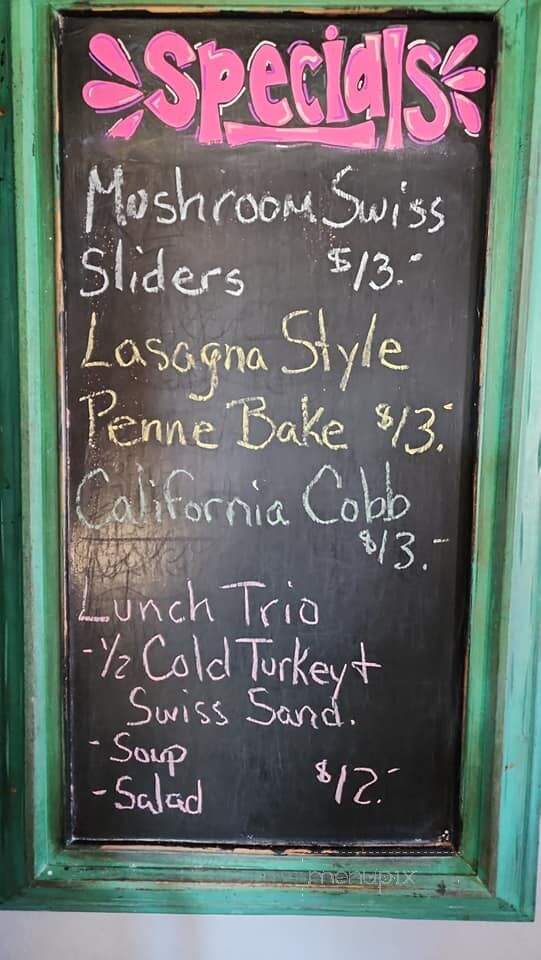 Specials
Mushroom Swiss
Sliders $13.-
Lasagna Style
Penne Bake $13.-
California Cobb
$13.-
Lunch Trio
-½ Cold Turkey +
Swiss Sand.
- Soup
- Salad $12.-
menupix